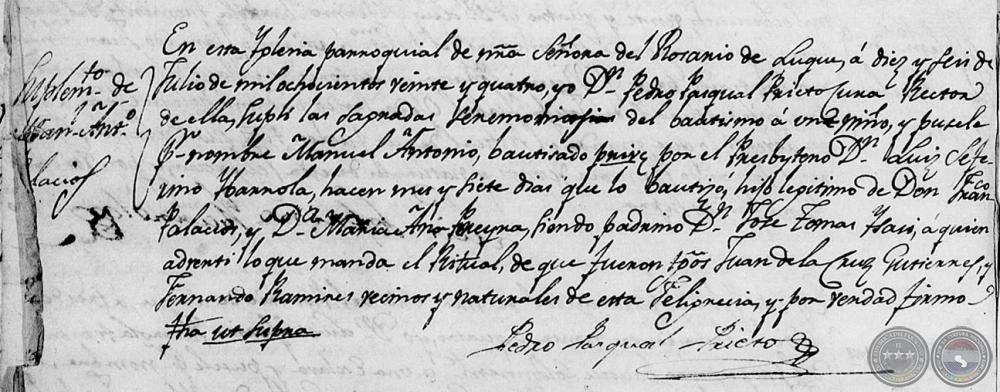 En esta Yglesia parroquial de ñra Señora del Rosario de Luque, á diez y seis de
Suplem.to de
Julio de mil ochocientos veinte y quatro, yo D.n Pedro Pasqual Prieto cura Rector
Man.l Ant.o
de ella, suplí las sagradas seremonias del bautismo á un niño, y pusele
p.r nombre Manuel Antonio, bautisado por el Presbytero D.n Luis Sefe-
lacios
rino Ybarrola, hacen mes y siete dias que lo bautisó, hijo legitimo de Don Fran.co
Palacios, y D.a Maria Ana Pereyra, siendo padrino D.n Jose Tomas Ysasi, á quien
adverti lo que manda el Ritual, de que fueron tgõs Juan de la Cruz Gutierres, y
Fernando Ramires vecinos y naturales de esta Feligrecia, y por verdad firmo
fha ut supra
Pedro Pasqual Prieto